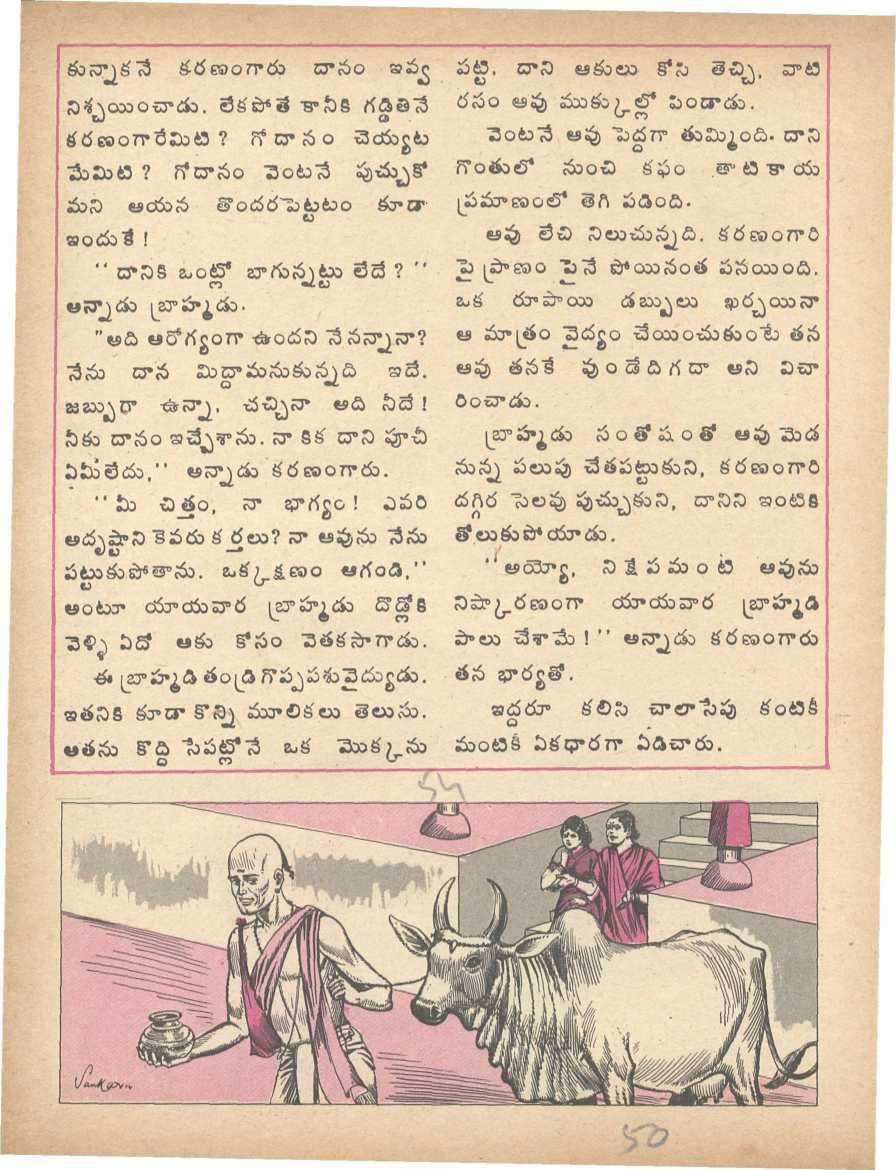 కున్నాకనే కరణంగారు దానం ఇవ్వ
నిశ్చయించాడు. లేకపోతే కానీకి గడ్డితినే
కరణంగారేమిటి? గోదానం చెయ్యట
మేమిటి? గోదానం వెంటనే పుచ్చుకో
మని ఆయన తొందరపెట్టటం కూడా
ఇందుకే!
‘‘దానికి ఒంట్లో బాగున్నట్టు లేదే?’’
అన్నాడు బ్రాహ్మడు.
"అది ఆరోగ్యంగా ఉందని నేనన్నానా?
నేను దాన మిద్దామనుకున్నది ఇదే.
జబ్బుగా ఉన్నా, చచ్చినా అది నీదే!
నీకు దానం ఇచ్చేశాను. నా కిక దాని పూచీ
ఏమీలేదు,’’ అన్నాడు కరణంగారు.
‘‘మీ చిత్తం, నా భాగ్యం! ఎవరి
అదృష్టాని కెవరు కర్తలు? నా ఆవును నేను
పట్టుకుపోతాను. ఒక్కక్షణం ఆగండి,’’
అంటూ యాయవార బ్రాహ్మడు దొడ్లోకి
వెళ్ళి ఏదో ఆకు కోసం వెతకసాగాడు.
ఈ బ్రాహ్మడి తండ్రి గొప్ప పశువైద్యుడు.
ఇతనికి కూడా కొన్ని మూలికలు తెలుసు.
అతను కొద్ది సేపట్లోనే ఒక మొక్కను
పట్టి, దాని ఆకులు కోసి తెచ్చి, వాటి
రసం ఆవు ముక్కుల్లో పిండాడు.
వెంటనే ఆవు పెద్దగా తుమ్మింది. దాని
గొంతులో నుంచి కఫం తాటికాయ
ప్రమాణంలో తెగి పడింది.
ఆవు లేచి నిలుచున్నది. కరణంగారి
పై ప్రాణం పైనే పోయినంత పనయింది.
ఒక రూపాయి డబ్బులు ఖర్చయినా
ఆ మాత్రం వైద్యం చేయించుకుంటే తన
ఆవు తనకే వుండేదిగదా అని విచా
రించాడు.
బ్రాహ్మడు సంతోషంతో ఆవు మెడ
నున్న పలుపు చేతపట్టుకుని, కరణంగారి
దగ్గిర సెలవు పుచ్చుకుని, దానిని ఇంటికి
తోలుకుపోయాడు.
‘‘అయ్యో, నిక్షేపమంటి ఆవును
నిష్కారణంగా యాయవార బ్రాహ్మడి
పాలు చేశామే!’’ అన్నాడు కరణంగారు
తన భార్యతో.
ఇద్దరూ కలిసి చాలాసేపు కంటికీ
మంటికీ ఏకధారగా ఏడిచారు.
54
Sankar
50